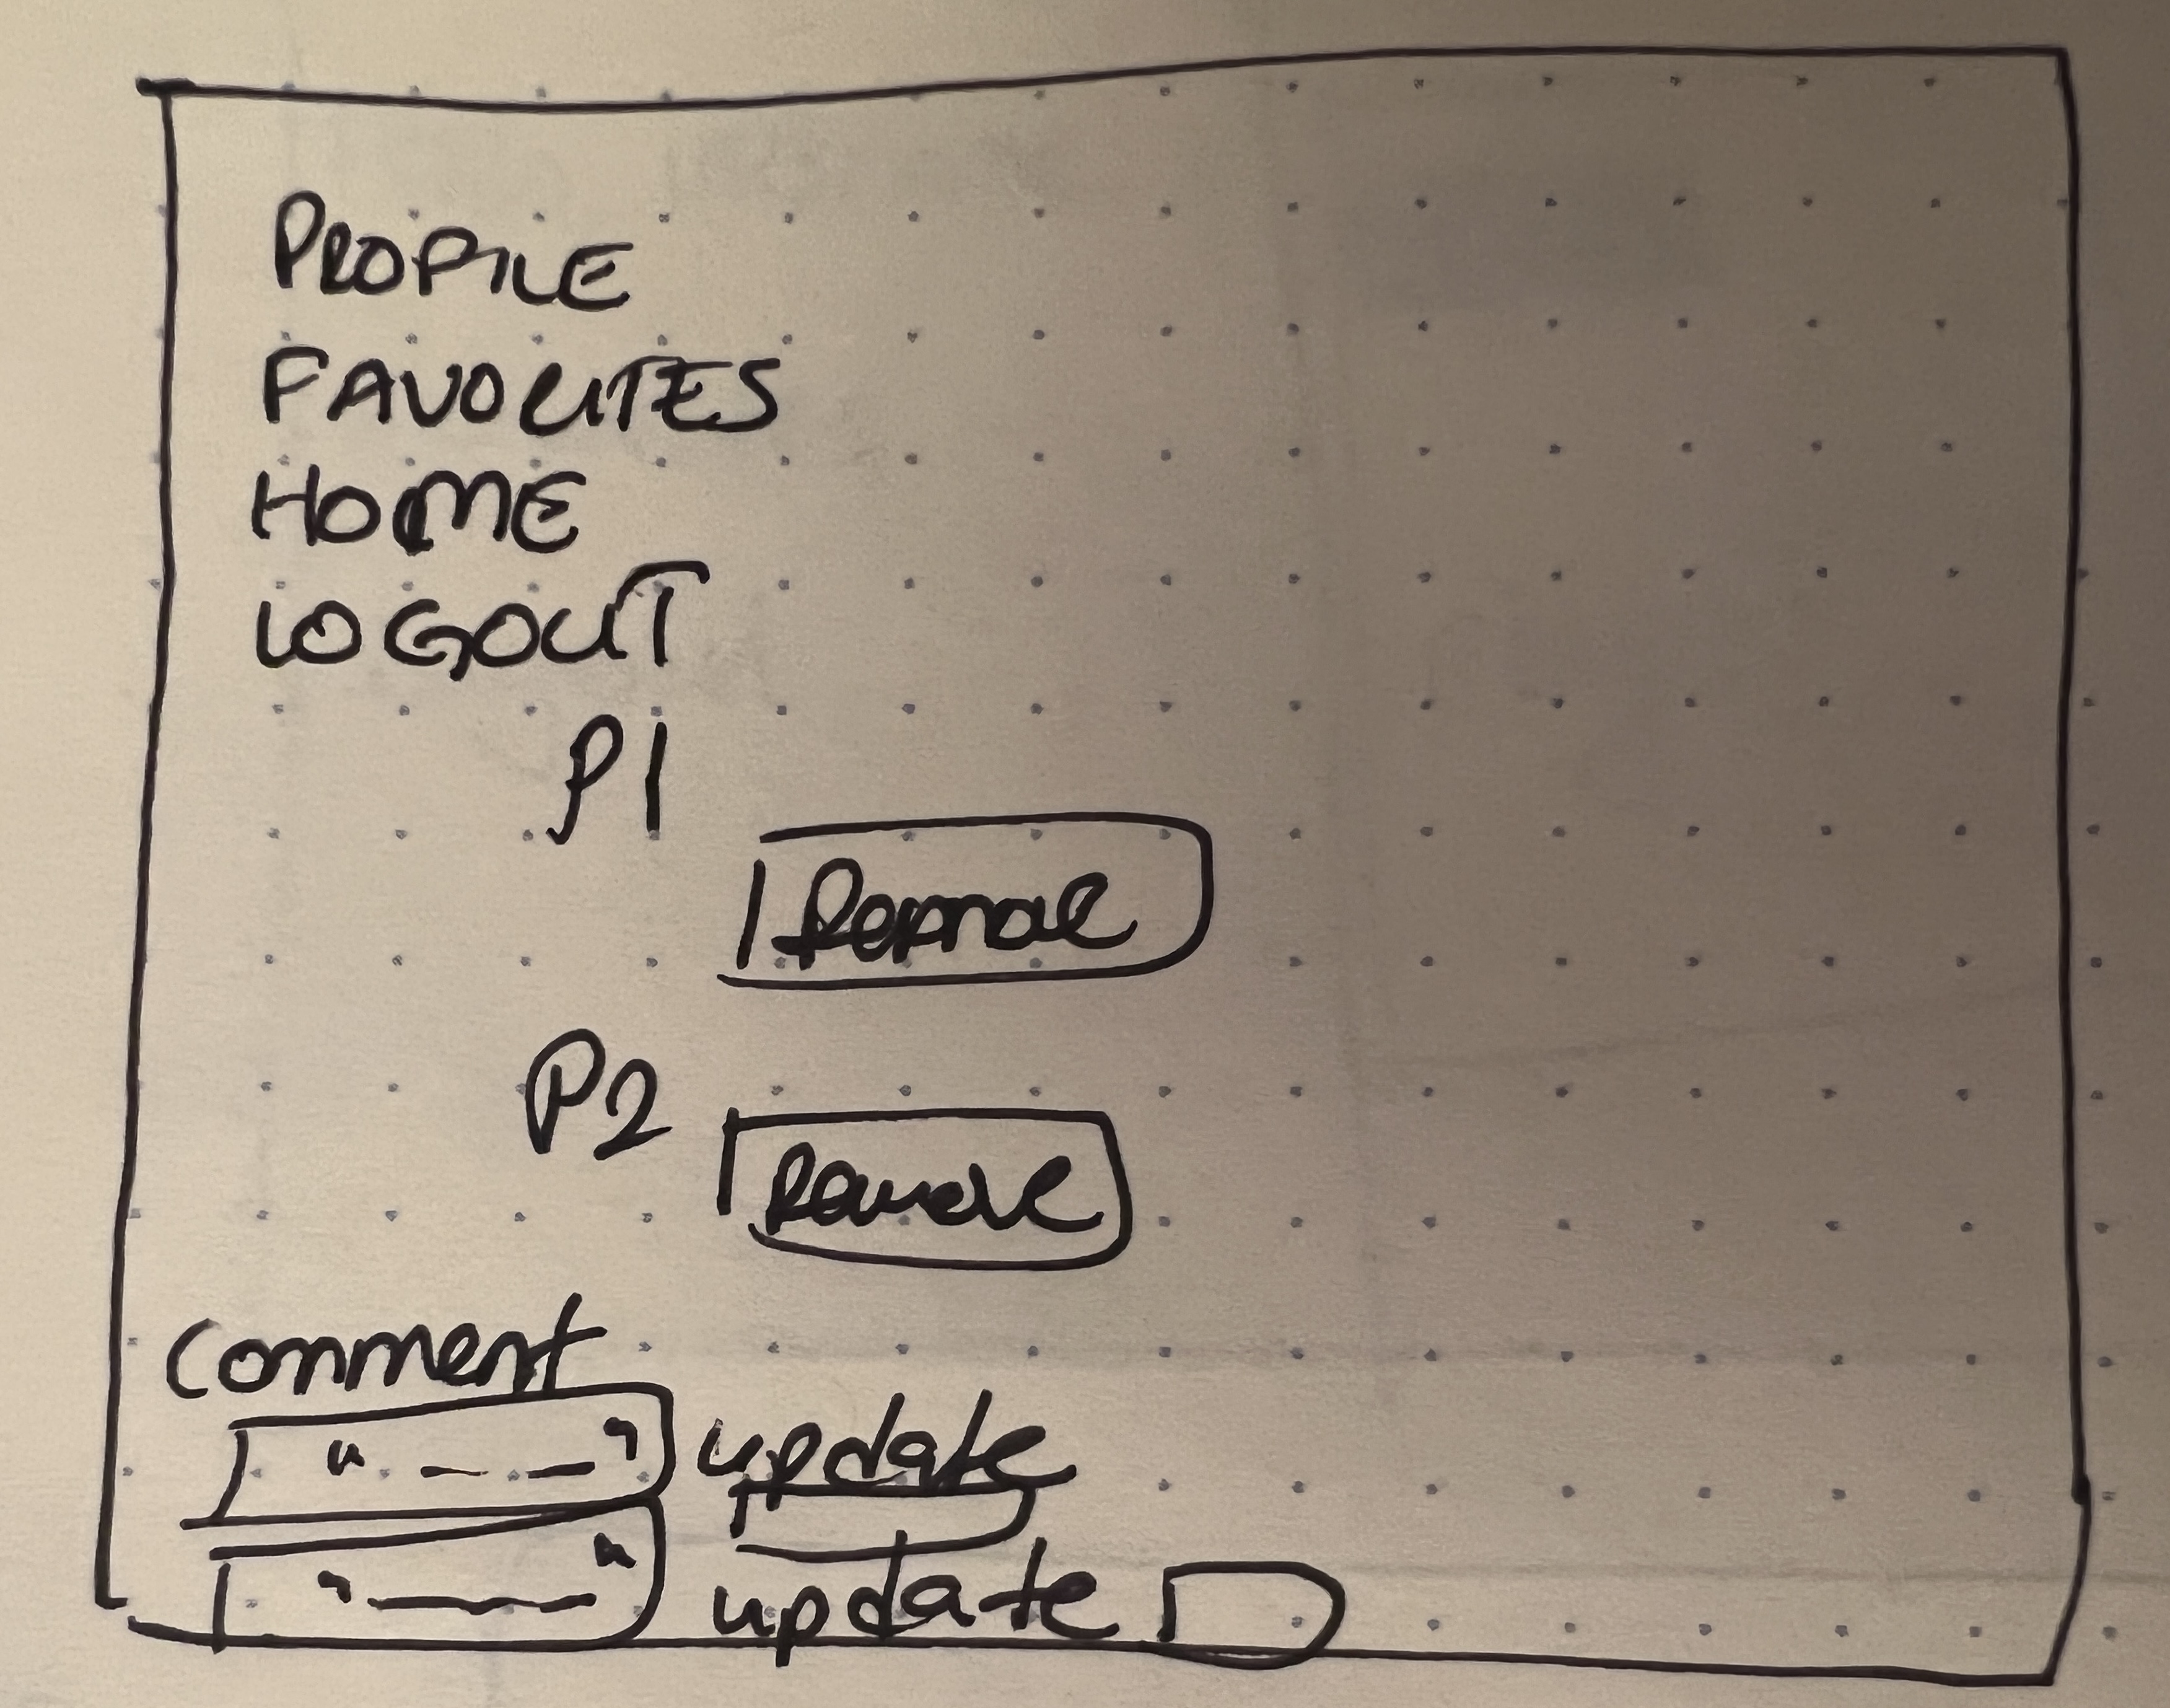 PROFILE
FAVORITES
HOME
LOGOUT
P1
Remove
P2
Remove
Comment
" - - - " update
" - - - " update